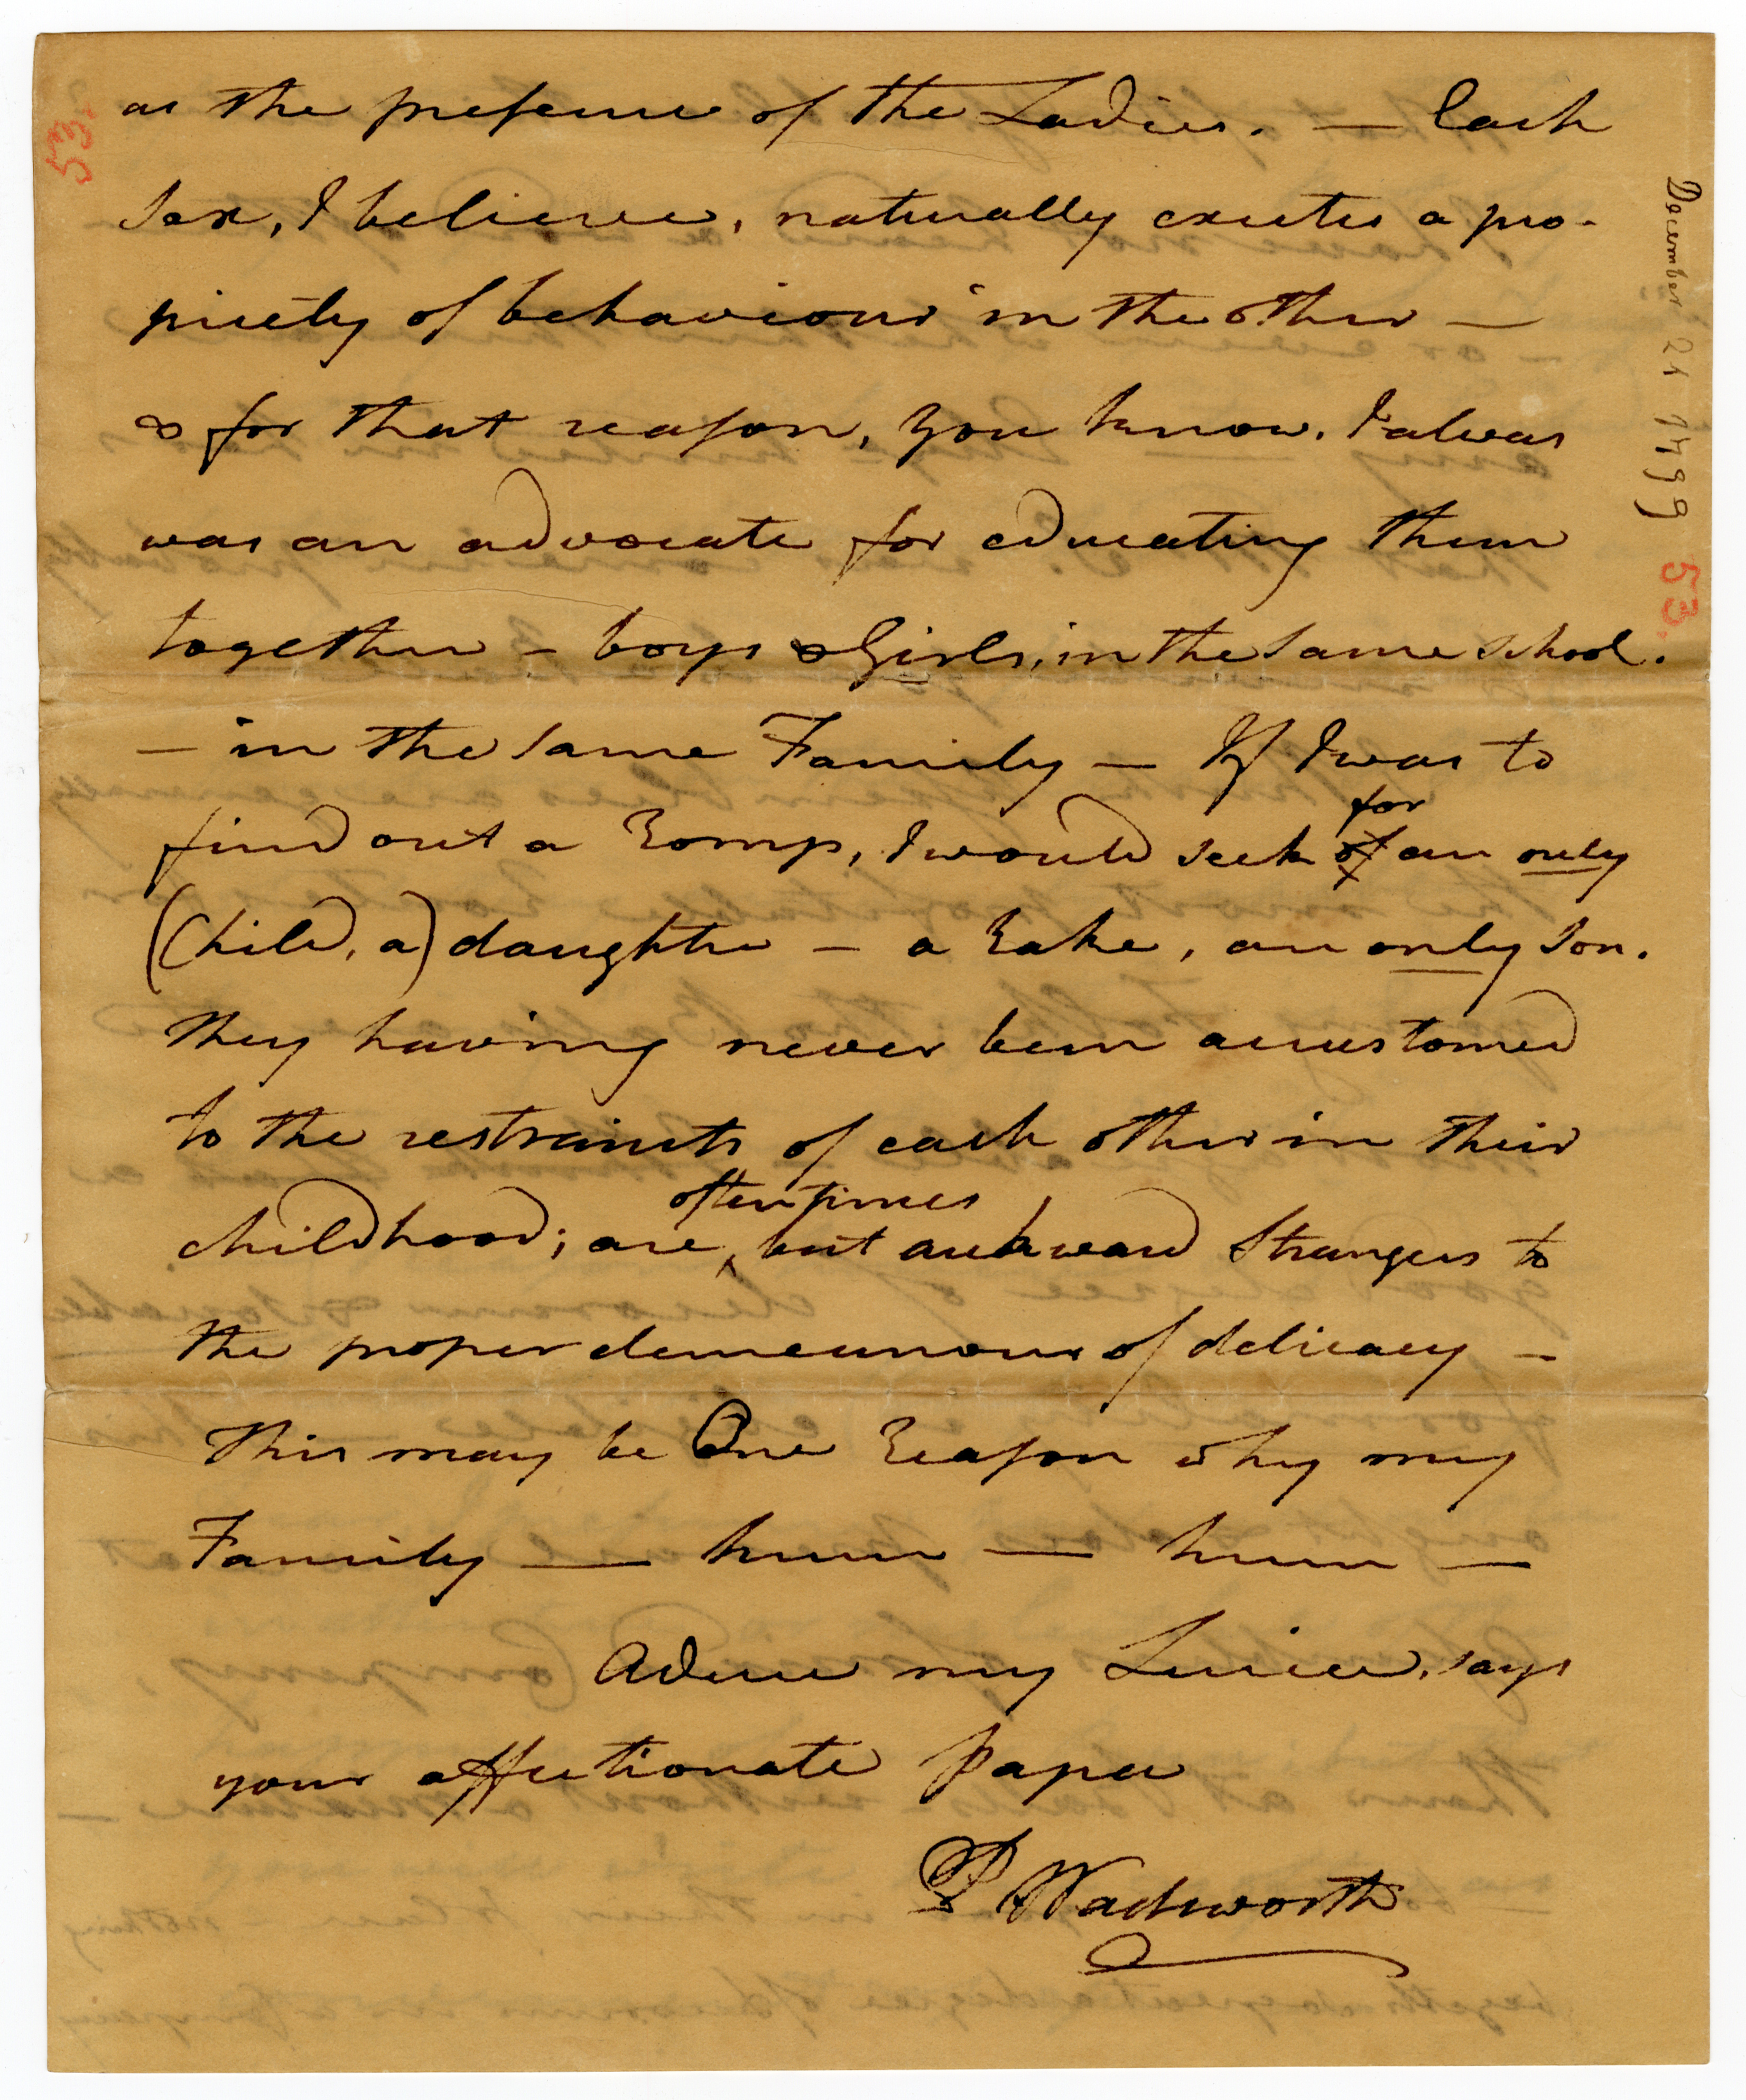 as the presence of the Ladies. — Each
Sex, I believe, naturally excites a pro-
priety of behaviour in the other —
& for that reason, you know, I alwas
was an advocate for educating them
together – boys & Girls, in the same school.
— in the same Family — If I was to
for
find out a Romp, I would seek of an only
(Child, a) daughter – a Rake, an only Son.
they having never been accustomed
to the restraints of each other in their
oftentimes
childhood; are, but awkward Strangers to
the proper demeanour of delicacy –
This may be One Reason why my
Family — hum — hum —
Adieu my Luice, says
your affectionate Papa
P Wadsworth
53.
December 21 1799
53.